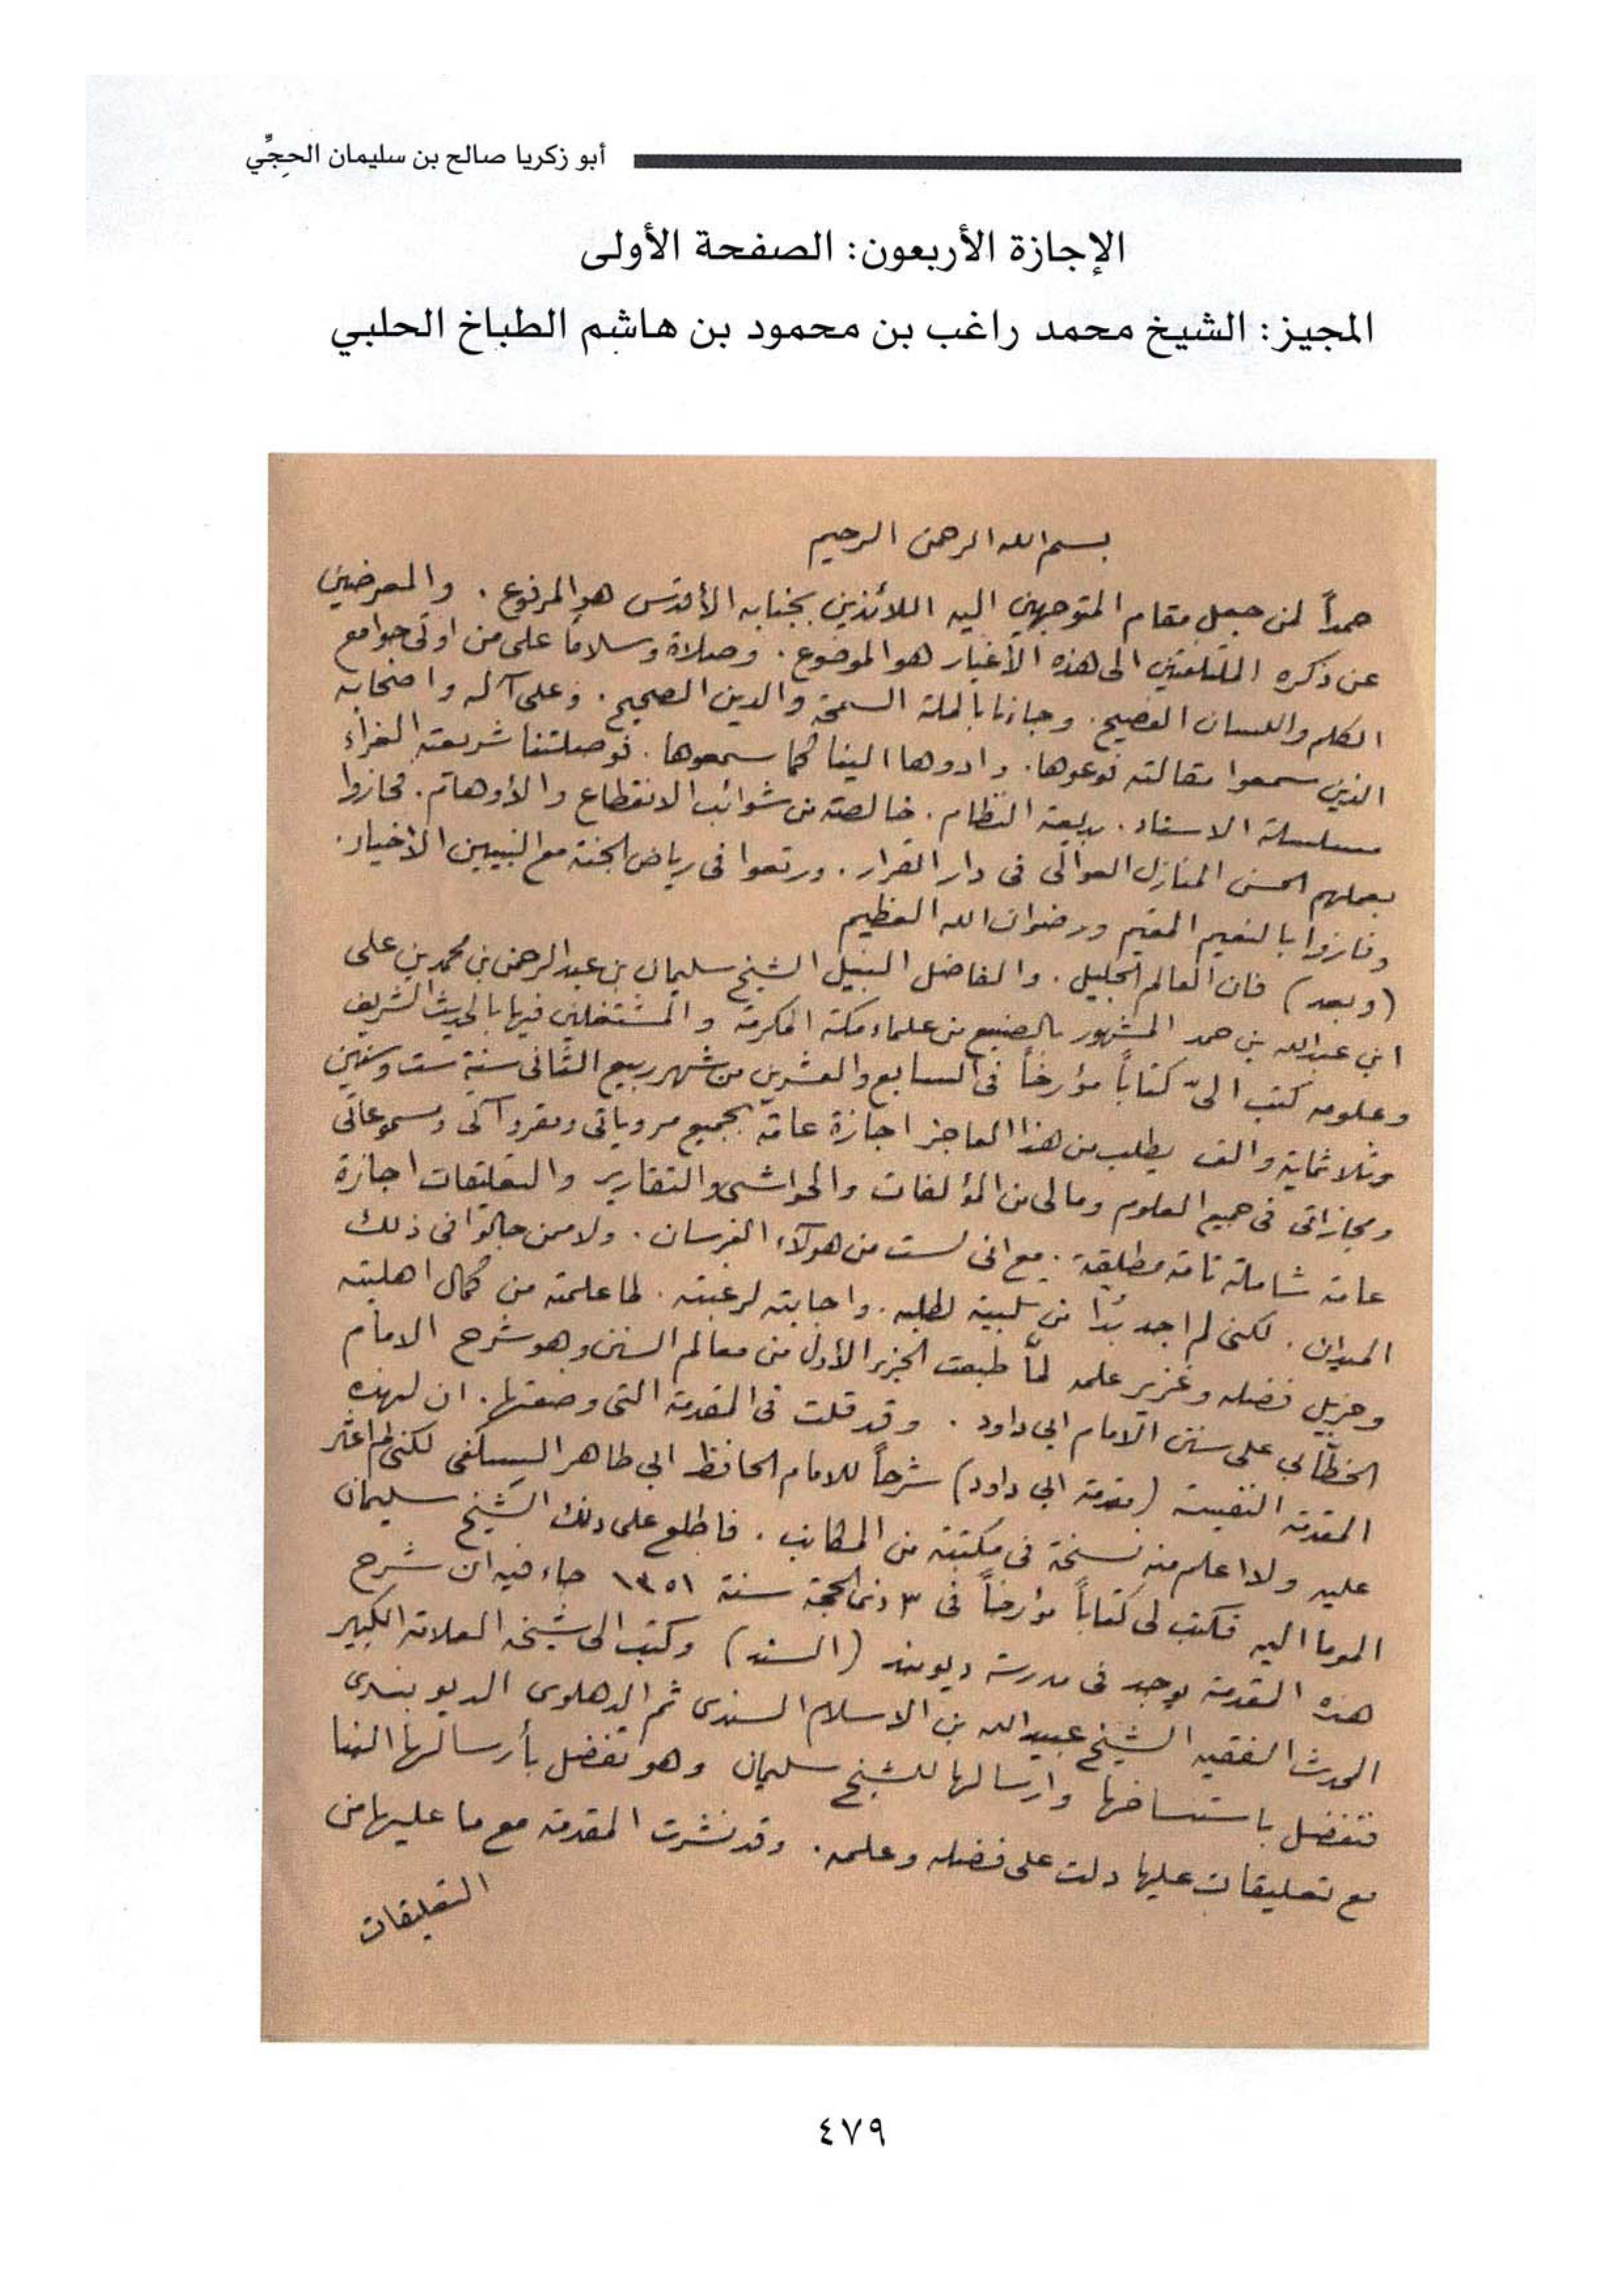 أبو زكريا صالح بن سليمان الحجِّي
الإجازة الأربعون: الصفحة الأولى
المجيز: الشيخ محمد راغب بن محمود بن هاشم الطباخ الحلبي
بسم الله الرحمن الرحيم
حمداً لمن جعل مقام المتوجهين اليه اللائذين بجنابه الأقدس هو المرفوع . والمعرضين
عن ذكره الملتفتين الى هذه الأغيار هو الموضوع . وصلاة وسلاماً على من اوتى جوامع
الكلم واللسان الفصيح . وجاءنا بالملة السمحة والدين الصحيح . وعلى آله واصحابه
الذين سمعوا مقالته فوعوها . وادوها الينا كما سمعوها . فوصلتنا شريعته الغراء
مسلسلة الاسناد . بديعة النظام . خالصة من شوائب الانقطاع والأوهام . فحازوا
بعملهم الحسن المنازل العوالى فى دار القرار . ورتعوا فى رياض الجنة مع النبيين الأخيار .
وفازوا بالنعيم المقيم ورضوان الله العظيم
(وبعد) فان العالم الجليل . والفاضل النبيل الشيخ سليمان بن عبد الرحمن بن محمد بن على
ابن عبدالله بن حمد المشهور بالصنيع من علماء مكة المكرمة والمشتغلين فيها بالحديث الشريف
وعلومه كتب الىّ كتاباً مؤرخاً فى السابع والعشرين من شهر ربيع الثانى سنة ست وستين
وثلاثماية والف يطلب من هذا العاجز اجازة عامة بجميع مروياتى ومقروآتى ومسموعاتى
ومجازاتى فى جميع العلوم ومالى من المؤلفات والحواشى والتقارير والتعليقات اجازة
عامة شاملة تامة مطلقة . مع انى لست من هؤلاء الفرسان . ولا ممن جالوا فى ذلك
الميدان . لكنى لم اجد بُدا من تلبية لطلبه . واجابته لرغبته . لما علمته من كمال اهليته
وجزيل فضله وغزير علمه لمّا طبعت الجزء الأول من معالم السنن وهو شرح الامام
الخطّابي على سنن الامام ابي داود . وقد قلت فى المقدمة التى وضعتها . ان لهذه
المقدمة النفيسة (مقدمة ابي داود) شرحاً للامام الحافظ ابي طاهر السِلَفى لكنى لم اعثر
عليه ولا اعلم منه نسخة فى مكتبة من المكاتب . فاطلع على ذلك الشيخ سليمان
الموما اليه فكتب لى كتاباً مؤرخاً فى ٣ ذى الحجة سنة ١٣٥١ جاء فيه ان شرح
هذه المقدمة يوجد فى مدرسة ديوبند (السند) وكتب الى شيخه العلامة الكبير
المحدث الفقيه الشيخ عبيدالله بن الاسلام السندى ثم الدهلوى الديوبندى
فتفضل باستنساخها وارسالها للشيخ سليمان وهو تفضل بأرسالها الينا
مع تعليقات عليها دلت على فضله وعلمه . وقد نشرت المقدمة مع ما عليها من
التعليقات
٤٧٩